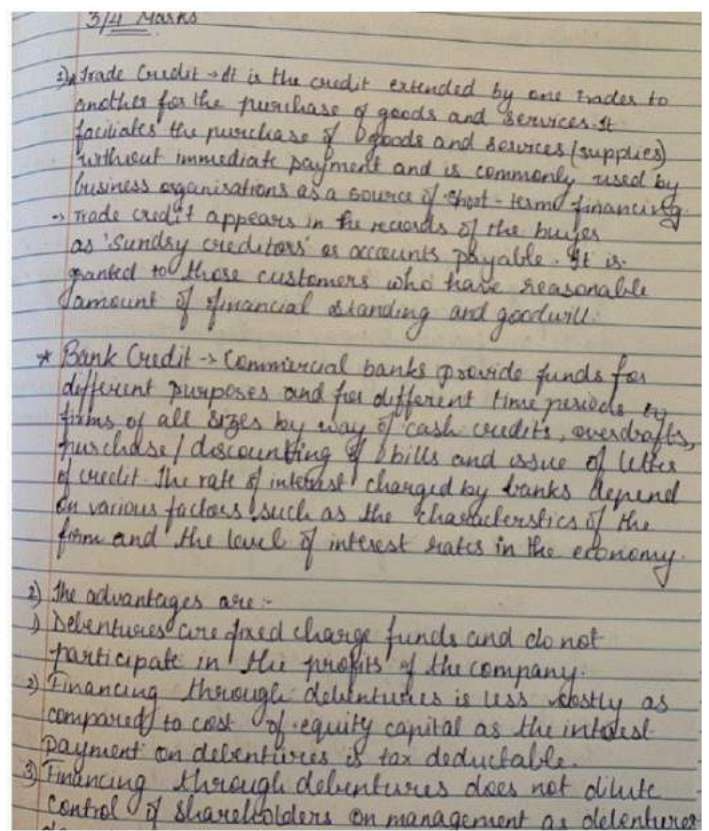 3/4 Marks
1)* Trade Credit → It is the credit extended by one trader to
another for the purchase of goods and services. It
faciliates the purchase of goods and services (supplies)
without immediate payment and is commonly used by
business organisations as a source of short-term financing.
→ Trade credit appears in the records of the buyer
as 'Sundry creditors' or accounts payable. It is
granted to those customers who have reasonable
amount of financial standing and goodwill.
* Bank Credit → Commercial banks provide funds for
different purposes and for different time periods to
firms of all sizes by way of cash credits, overdrafts,
purchase / discounting of bills and issue of letter
of credit. The rate of interest charged by banks depend
on various factors such as the characterstics of the
firm and the level of interest rates in the economy.
2) The advantages are :-
1) Debentures are fixed charge funds and do not
participate in the profits of the company.
2) Financing through debentures is less costly as
compared to cost of equity capital as the interest
payment on debentures is tax deductable.
3) Financing through debentures does not dilute
control of shareholders on management as debentures